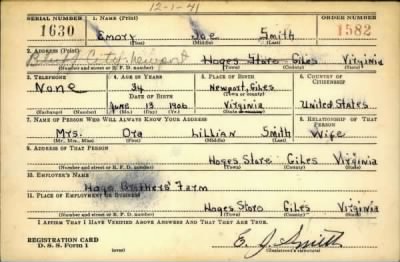 12-1-41
SERIAL NUMBER 1. NAME (Print) ORDER NUMBER
1630 Emory Joe Smith 1582
(First) (Middle) (Last)
2. ADDRESS (Print)
Bluff City Newport Hoges Store Giles Virginia
(Number and street or R. F. D. number) (Town) (County) (State)
3. TELEPHONE 4. AGE IN YEARS 5. PLACE OF BIRTH 6. COUNTRY OF CITIZENSHIP
None 34 Newport, Giles
DATE OF BIRTH (Town or county)
June 13 1906 Virginia United States
(Exchange) (Number) (Mo.) (Day) (Yr.) (State or country)
7. NAME OF PERSON WHO WILL ALWAYS KNOW YOUR ADDRESS 8. RELATIONSHIP OF THAT PERSON
Mrs. Ora Lillian Smith Wife
(Mr., Mrs., Miss) (First) (Middle) (Last)
9. ADDRESS OF THAT PERSON
Hoges Store Giles Virginia
(Number and street or R. F. D. number) (Town) (County) (State)
10. EMPLOYER'S NAME
Hoge Brothers' Farm
11. PLACE OF EMPLOYMENT OR BUSINESS
Hoges Store Giles Virginia
(Number and street or R. F. D. number) (Town) (County) (State)
I AFFIRM THAT I HAVE VERIFIED ABOVE ANSWERS AND THAT THEY ARE TRUE.
REGISTRATION CARD
D. S. S. Form 1 E. J. Smith
(Registrant's signature)